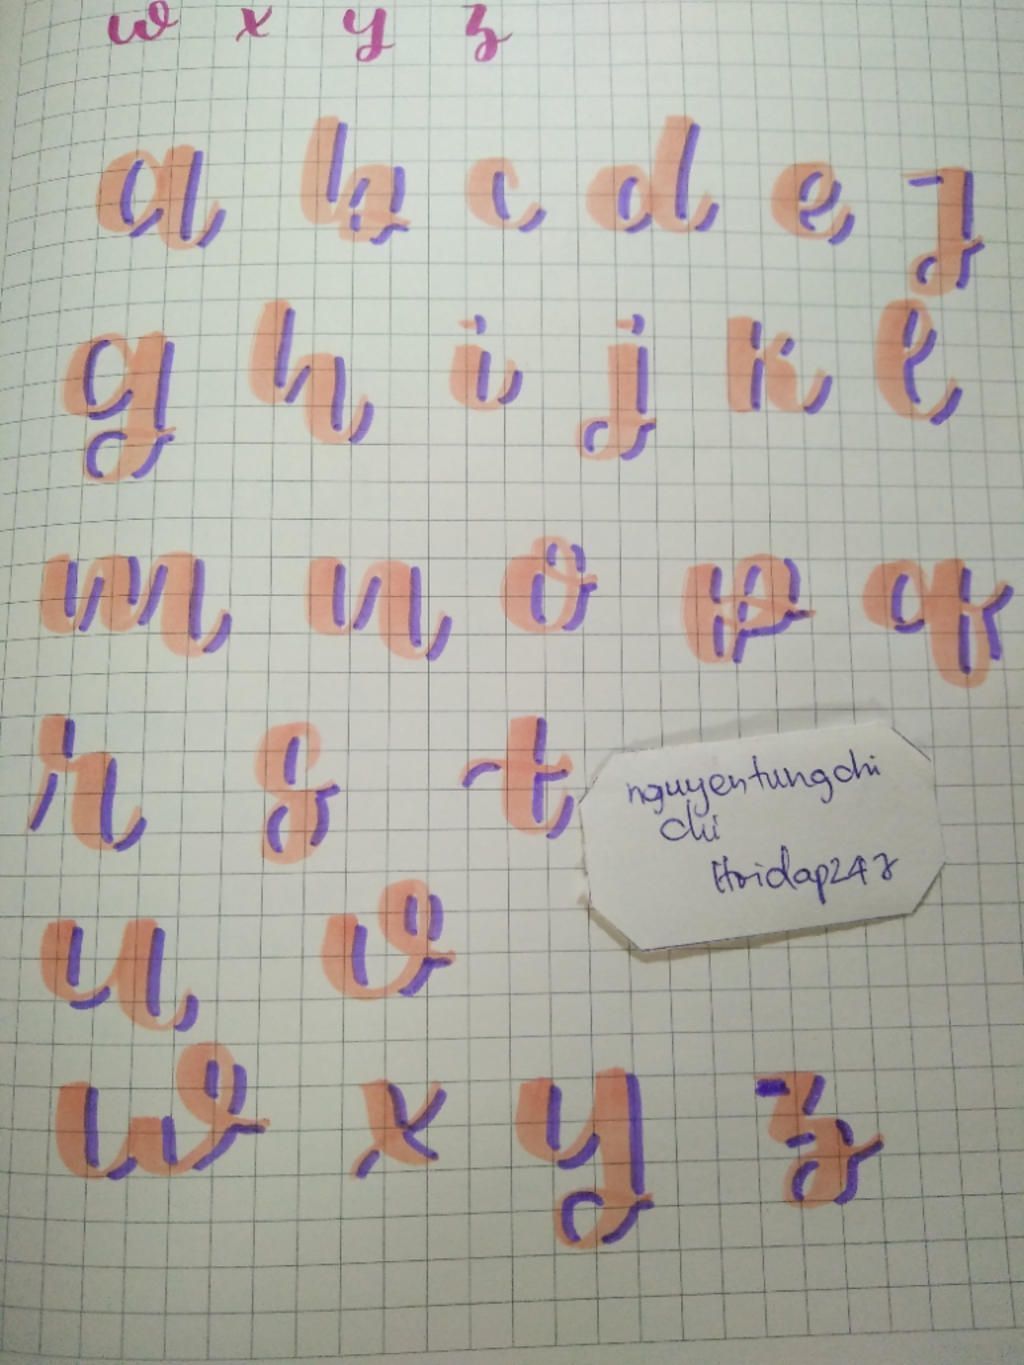 w x y z
a b c d e f
g h i j k l
m n o p q
r s t
nguyentungchi
chi
Hoidap247
u v
w x y z